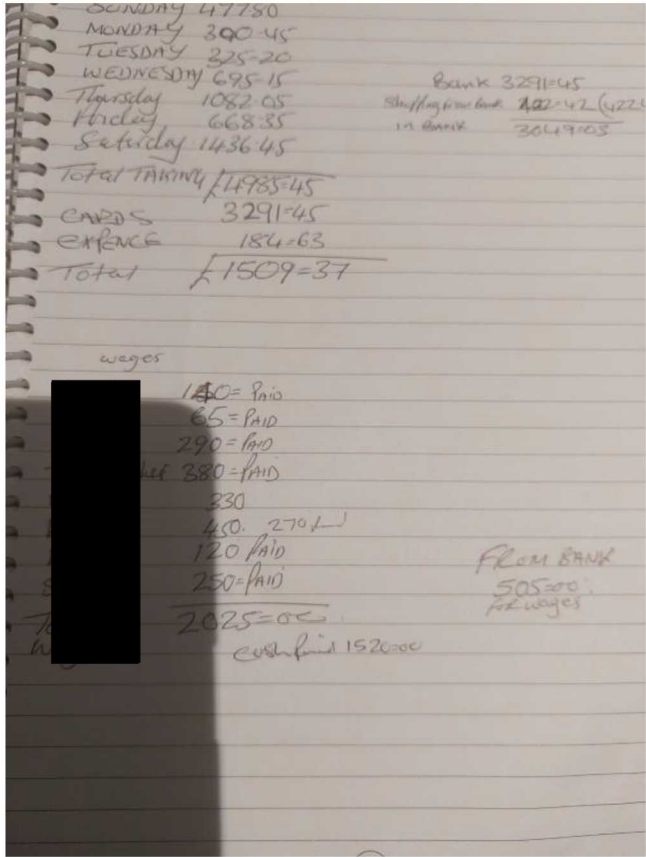 SUNDAY 477.80
MONDAY 300.45
TUESDAY 325-20
WEDNESDAY 695-15
Thursday 1082-05
Friday 668-35
Saturday 1436-45
Total TAKING £4985=45
CARDS 3291-45
EXPENCE 184=63
Total £1509=37
Bank 3291=45
from Bank
in BANK 3049=03
wages
140= PAID
65= PAID
290= PAID
380= PAID
330
450. 270
120 PAID
250= PAID
2025=00
cash paid 1520=00
FROM BANK
505=00
For wages